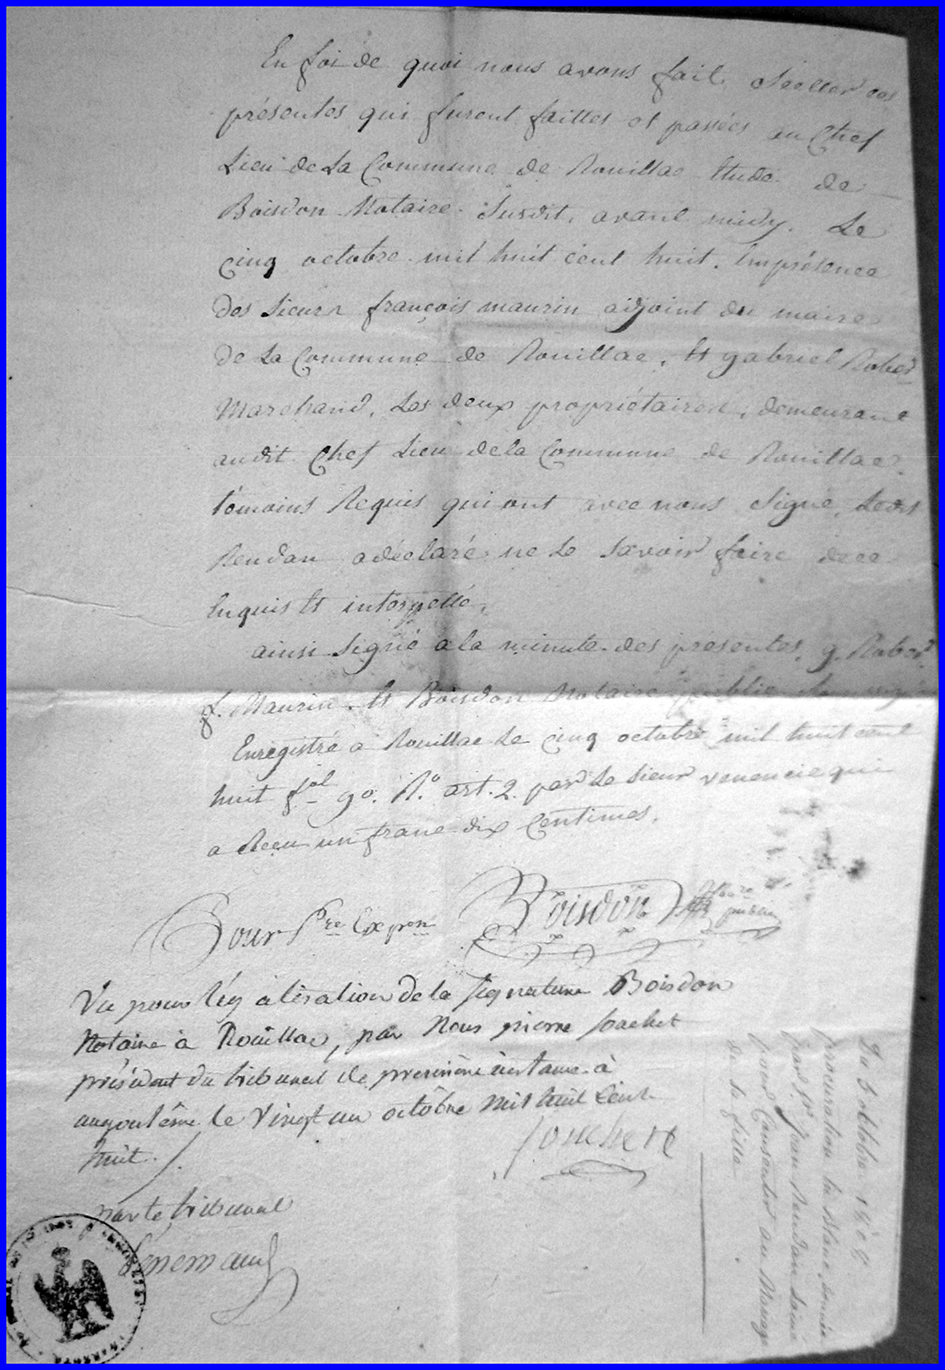 En foi de quoi nous avons fait Sceller ces
présentes qui furent faittes et passées au Chef
Lieu de La Commune de Rouillac Etude de
Boisdon Notaire Susdit, avant midy. Le
cinq octobre mil huit cent huit. En présence
des Sieurs françois maurin adjoint du maire
de La Commune de Rouillac, Et gabriel Rober
Marchand, Les deux propriétaires, demeurant
audit Chef Lieu de la Commune de Rouillac
témoins Requis qui ont avec nous Signé, Ledit
Rendan a déclaré ne Le Savoir faire de ce
Enquis Et interpellé,
ainsi Signé a la minute des presentes, g. Rober
f. Maurin, Et Boisdon Notaire public
Enregistré a Rouillac Le cinq octobre mil huit cent
huit fol 90. R.° art. 2. par Le Sieur venencie qui
a Reçu un franc dix Centimes.
Pour Pre Expon Boisdon Nre public
Vu pour légalisation de la Signature Boisdon
Notaire à Rouillac, par Nous pierre Souchet
président du tribunal de première instance à
angoulême le vingt un octobre mil huit Cent
huit.
Souchet
par le tribunal
Du 5 8bre 1808
procuration En blanc donnée
par Jean Rendan Lainé
pour Consentir au Mariage
de sa fille